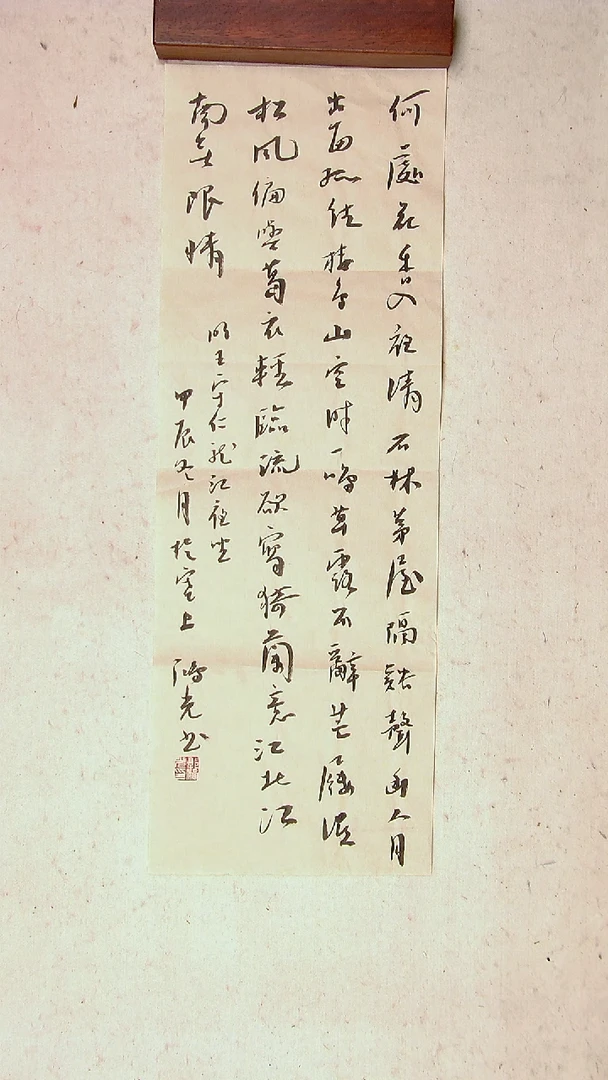 何處花香入夜清石林茅屋隔谿聲幽人月
出每孤往棲鳥山空時一鳴草露不辭芒屨濕
松風偏與葛衣輕臨流欲寫猗蘭意江北江
南無限情
明王守仁龍江夜坐
甲辰冬月於塞上 鴻光书